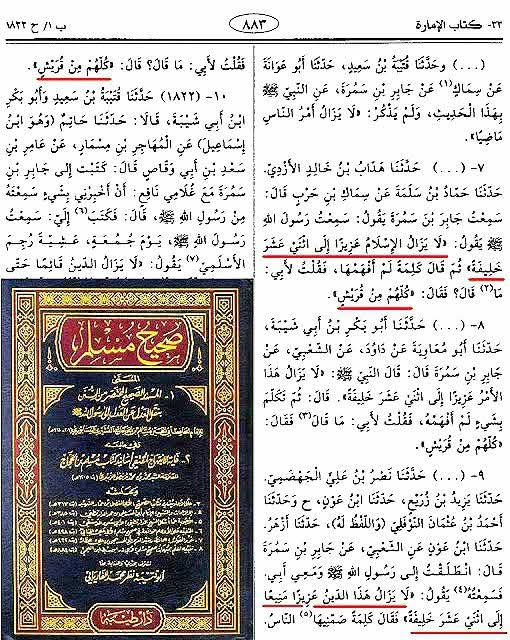 ٣٣- كتاب الإمارة
٨٨٣
ب ١/ ح ١٨٢٢
(...) وحَدَّثَنَا قُتَيْبَةُ بْنُ سَعِيدٍ، حَدَّثَنَا أَبُو عَوَانَةَ
عَنْ سِمَاكٍ(١) عَنْ جَابِرِ بْنِ سَمُرَةَ، عَنِ النَّبِيِّ ﷺ
بِهَذَا الْحَدِيثِ، وَلَمْ يَذْكُرْ: «لَا يَزَالُ أَمْرُ النَّاسِ
مَاضِيًا».
٧- (...) حَدَّثَنَا هَدَّابُ بْنُ خَالِدٍ الأَزْدِيُّ،
حَدَّثَنَا حَمَّادُ بْنُ سَلَمَةَ عَنْ سِمَاكِ بْنِ حَرْبٍ قَالَ:
سَمِعْتُ جَابِرَ بْنَ سَمُرَةَ يَقُولُ: سَمِعْتُ رَسُولَ اللهِ
ﷺ يَقُولُ: «لَا يَزَالُ الإِسْلَامُ عَزِيزًا إِلَى اثْنَيْ عَشَرَ
خَلِيفَةً» ثُمَّ قَالَ كَلِمَةً لَمْ أَفْهَمْهَا، فَقُلْتُ لأَبِي:
مَا(٢) قَالَ؟ فَقَالَ: «كُلُّهُمْ مِنْ قُرَيْشٍ».
٨- (...) حَدَّثَنَا أَبُو بَكْرِ بْنُ أَبِي شَيْبَةَ،
حَدَّثَنَا أَبُو مُعَاوِيَةَ عَنْ دَاوُدَ، عَنِ الشَّعْبِيِّ، عَنْ
جَابِرِ بْنِ سَمُرَةَ قَالَ: قَالَ النَّبِيُّ ﷺ: «لَا يَزَالُ هَذَا
الأَمْرُ عَزِيزًا إِلَى اثْنَيْ عَشَرَ خَلِيفَةً». قَالَ: ثُمَّ تَكَلَّمَ
بِشَيْءٍ لَمْ أَفْهَمْهُ، فَقُلْتُ لأَبِي: مَا قَالَ(٣)؟ فَقَالَ:
«كُلُّهُمْ مِنْ قُرَيْشٍ».
٩- (...) حَدَّثَنَا نَصْرُ بْنُ عَلِيٍّ الْجَهْضَمِيُّ،
حَدَّثَنَا يَزِيدُ بْنُ زُرَيْعٍ، حَدَّثَنَا ابْنُ عَوْنٍ، ح وَحَدَّثَنَا
أَحْمَدُ بْنُ عُثْمَانَ النَّوْفَلِيُّ (وَاللَّفْظُ لَهُ)، حَدَّثَنَا أَزْهَرُ،
حَدَّثَنَا ابْنُ عَوْنٍ عَنِ الشَّعْبِيِّ، عَنْ جَابِرِ بْنِ سَمُرَةَ
قَالَ: انْطَلَقْتُ إِلَى رَسُولِ اللهِ ﷺ وَمَعِي أَبِي،
فَسَمِعْتُهُ(٤) يَقُولُ: «لَا يَزَالُ هَذَا الدِّينُ عَزِيزًا مَنِيعًا
إِلَى اثْنَيْ عَشَرَ خَلِيفَةً» فَقَالَ كَلِمَةً صَمَّنِيهَا(٥) النَّاسُ،
فَقُلْتُ لأَبِي: مَا قَالَ؟ قَالَ: «كُلُّهُمْ مِنْ قُرَيْشٍ».
١٠- (١٨٢٢) حَدَّثَنَا قُتَيْبَةُ بْنُ سَعِيدٍ وَأَبُو بَكْرِ
ابْنُ أَبِي شَيْبَةَ، قَالَا: حَدَّثَنَا حَاتِمٌ (وَهُوَ ابْنُ
إِسْمَاعِيلَ) عَنِ الْمُهَاجِرِ بْنِ مِسْمَارٍ، عَنْ عَامِرِ بْنِ
سَعْدِ بْنِ أَبِي وَقَّاصٍ قَالَ: كَتَبْتُ إِلَى جَابِرِ بْنِ
سَمُرَةَ مَعَ غُلَامِي نَافِعٍ: أَنْ أَخْبِرْنِي بِشَيْءٍ سَمِعْتَهُ
مِنْ رَسُولِ اللهِ ﷺ، قَالَ: فَكَتَبَ(٦) إِلَيَّ: سَمِعْتُ
رَسُولَ اللهِ ﷺ، يَوْمَ جُمُعَةٍ، عَشِيَّةَ رُجِمَ
الأَسْلَمِيُّ(٧) يَقُولُ: «لَا يَزَالُ الدِّينُ قَائِمًا حَتَّى
صحيح مسلم
المسمى
١- المسند الصحيح المختصر من السنن
بنقل العدل عن العدل إلى رسول الله ﷺ
دار طيبة